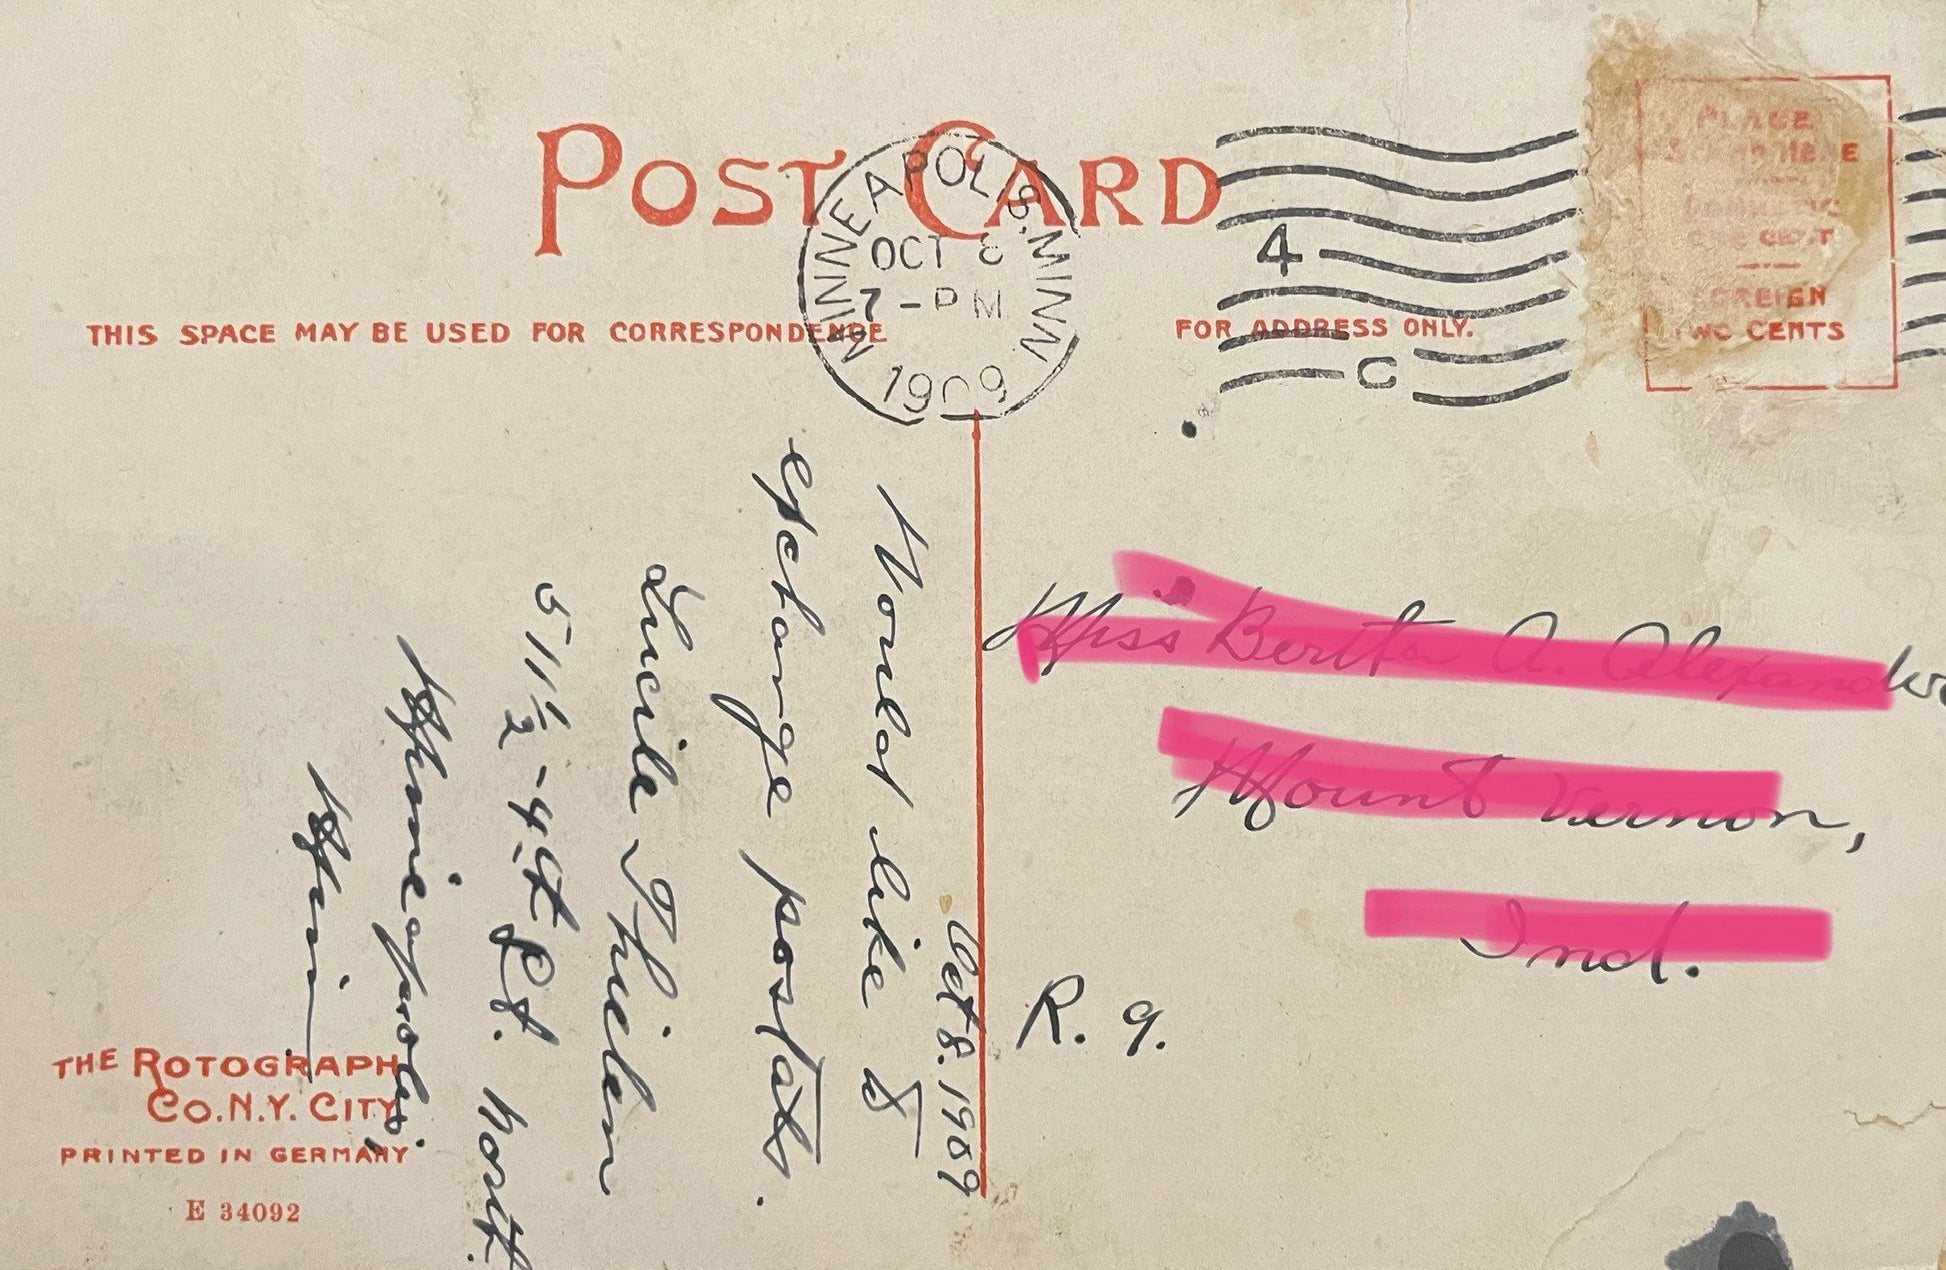 POST CARD
MINNEAPOLIS, MINN
OCT 8
7-PM
1909
4
C
PLACE
HERE
DOMESTIC
ONE CENT
FOREIGN
TWO CENTS
THIS SPACE MAY BE USED FOR CORRESPONDENCE
FOR ADDRESS ONLY.
Oct 8. 1909
Would like to
exchange postals.
Lucile Thielen
511½-4th St. North.
Minneapolis,
Minn
Miss Bertha A. Alexander
Mount Vernon,
Ind.
R. 9.
THE ROTOGRAPH
CO. N.Y. CITY
PRINTED IN GERMANY
E 34092